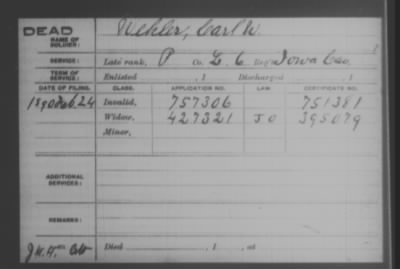 DEAD
NAME OF SOLDIER:
Wehler, Carl W.
SERVICE:
Late rank, P Co. L. 6 Reg't Iowa Cav.
TERM OF SERVICE:
Enlisted , 1 Discharged , 1
DATE OF FILING. CLASS. APPLICATION NO. LAW. CERTIFICATE NO.
1890 Feb. 24 Invalid, 757306 751381
Widow, 427321 395079
Minor,
ADDITIONAL SERVICES:
REMARKS:
Died , 1 , at